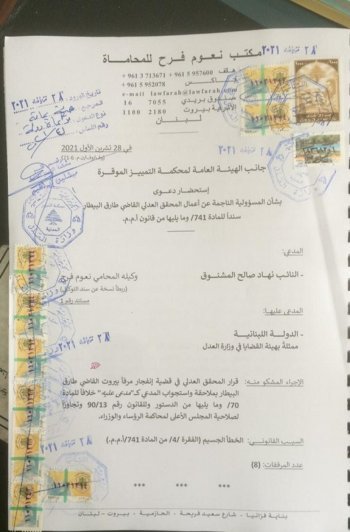 مكتب نعوم فرح للمحاماة
٢٨ تشرين الأول ٢٠٢١
هاتف + 961 3 713671 + 961 5 957600
فاكس + 961 5 952078
e-mail lawfarah@lawfarah.com
صندوق بريدي 7055 16
الأشرفية بيروت 2180 1100
لبنان
في 28 تشرين الأول 2021
جانب الهيئة العامة لمحكمة التمييز الموقرة
إستحضار دعوى
بشأن المسؤولية الناجمة عن أعمال المحقق العدلي القاضي طارق البيطار
سنداً للمادة /741/ وما يليها من قانون أ.م.م.
المدعي:
- النائب نهاد صالح المشنوق
وكيله المحامي نعوم فرح
(ربطاً نسخة عن سند التوكيل)
مستند رقم 1
المدعى عليها:
- الدولة اللبنانية
ممثلة بهيئة القضايا في وزارة العدل
الإجراء المشكو منه: قرار المحقق العدلي في قضية إنفجار مرفأ بيروت القاضي طارق
البيطار بملاحقة واستجواب المدعي كـ"مدعى عليه" خلافاً للمادة
/70/ وما يليها من الدستور وللقانون رقم 90/13 وتجاوزاً
لصلاحية المجلس الأعلى لمحاكمة الرؤساء والوزراء.
السبب القانوني: الخطأ الجسيم (الفقرة /4/ من المادة 741/أ.م.م.)
عدد المرفقات: (8)
*** *** ***
بناية فرانيا - شارع سعيد فريحة - الحازمية - بيروت - لبنان